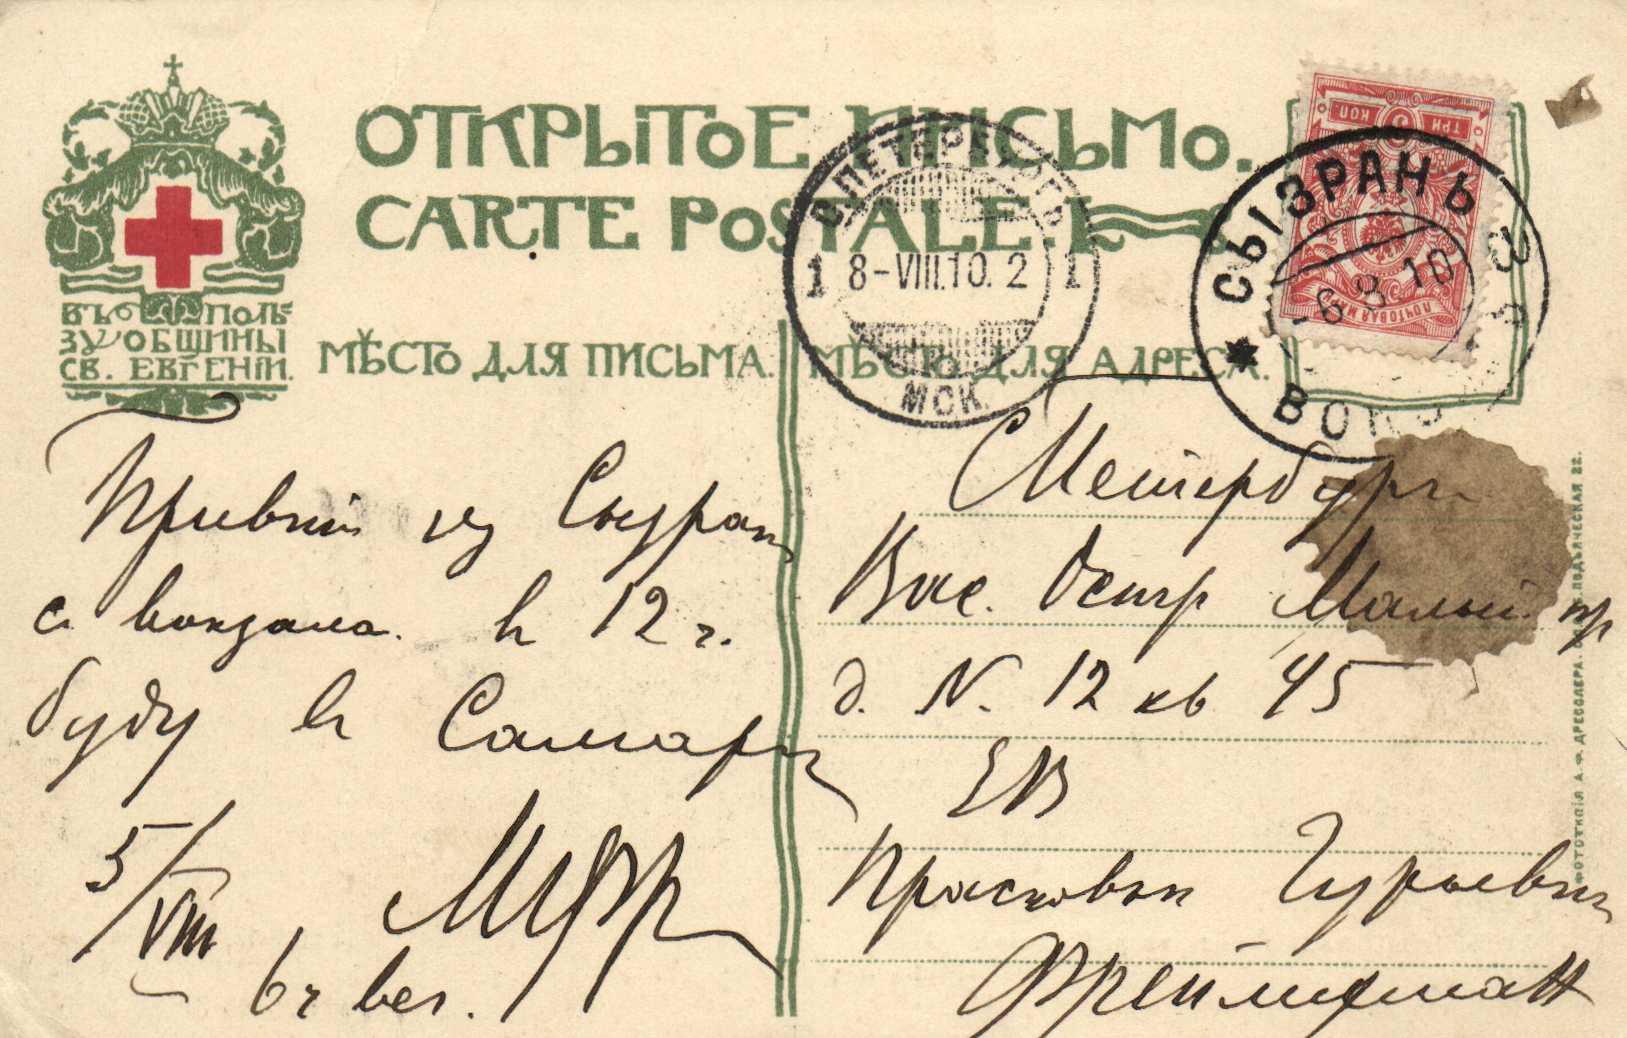 ОТКРЫТОЕ ПИСЬМО.
CARTE POSTALE.
ВЪ ПОЛЬ=
ЗУ ОБЩИНЫ
СВ. ЕВГЕНІИ.
МѢСТО ДЛЯ ПИСЬМА.
МѢСТО ДЛЯ АДРЕСА.
С.ПЕТЕРБУРГЪ
1 8-VIII.10. 2 1
МСК.
ТРИ КОП.
ПОЧТОВАЯ МАРКА
СЫЗРАНЬ
-6 8 10
ВОКЗ
Привѣт из Сызрани
с вокзала. в 12 ч.
буду в Самарѣ
5/VIII
6 ч веч.
Петербург
Вас. Остр Малый пр
д. N. 12 кв 45
ЕВ
Прасковьи Гурьевнѣ
ФОТОТИПІЯ А. Ф. ДРЕССЛЕРА. ПОДЬЯЧЕСКАЯ 22.